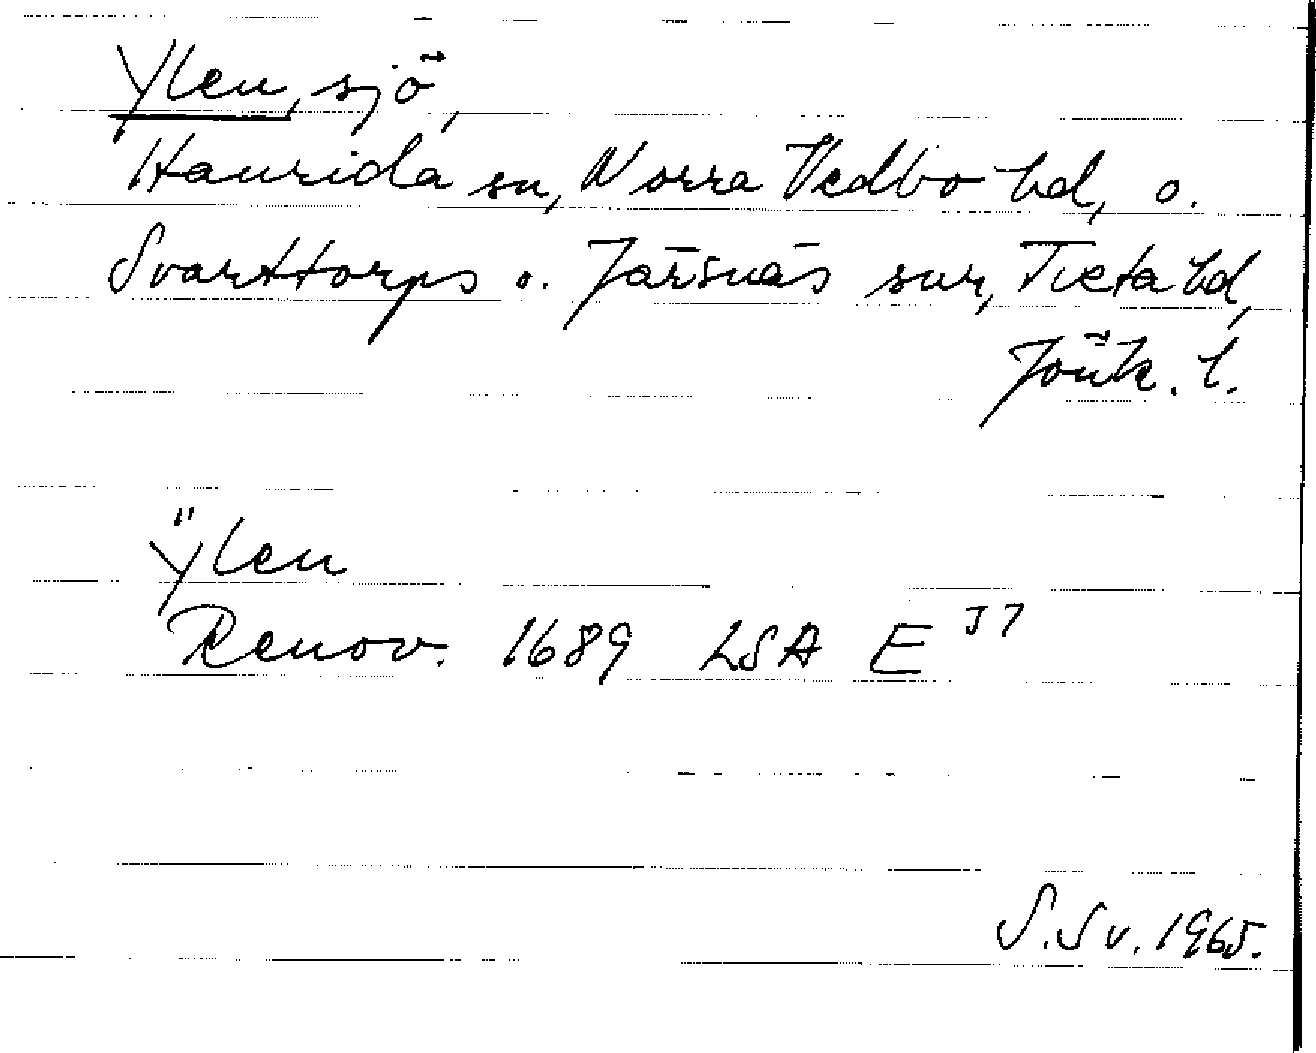 Ylen, sjö,
Haurida sn, Norra Vedbo hd, o.
Svarttorps o. Järsnäs snr, Tveta hd,
Jönk. l.
Ÿlen
Renov. 1689 LSA E J7
S. Sv. 1965.